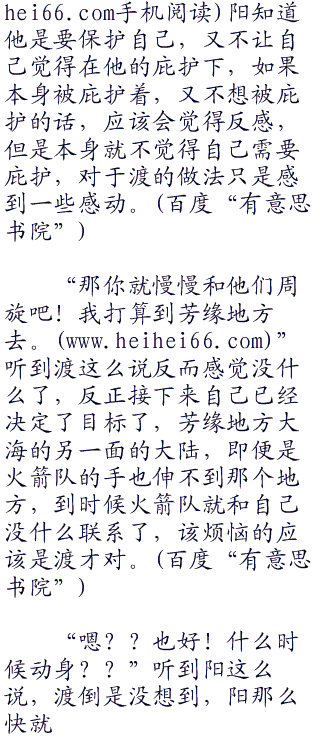 hei66.com手机阅读)阳知道
他是要保护自己，又不让自
己觉得在他的庇护下，如果
本身被庇护着，又不想被庇
护的话，应该会觉得反感，
但是本身就不觉得自己需要
庇护，对于渡的做法只是感
到一些感动。(百度“有意思
书院”)
“那你就慢慢和他们周
旋吧！我打算到芳缘地方
去。(www.heihei66.com)”
听到渡这么说反而感觉没什
么了，反正接下来自己已经
决定了目标了，芳缘地方大
海的另一面的大陆，即便是
火箭队的手也伸不到那个地
方，到时候火箭队就和自己
没什么联系了，该烦恼的应
该是渡才对。(百度“有意思
书院”)
“嗯？？也好！什么时
候动身？？”听到阳这么
说，渡倒是没想到，阳那么
快就